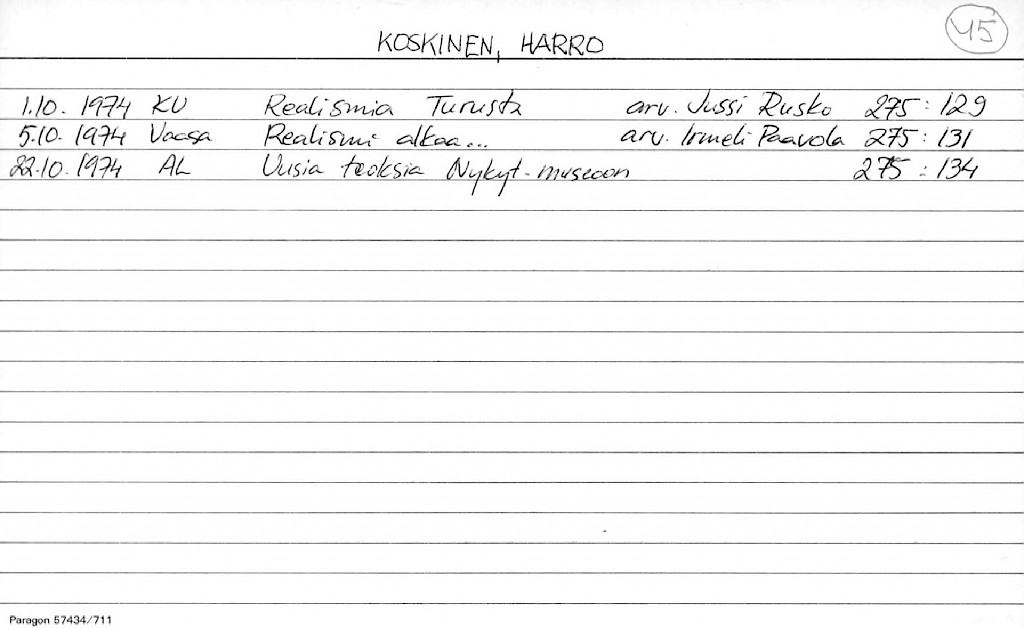 45
KOSKINEN, HARRO
1.10. 1974 KU Realismia Turusta arv. Jussi Rusko 275:129
5.10. 1974 Vaasa Realismi alkaa... arv. Irmeli Paavola 275:131
22.10. 1974 AL Uusia teoksia Nykyt-museoon 275:134
Paragon 57434/711